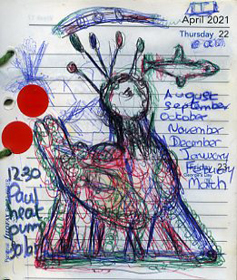 April 2021
Thursday 22
August
September
October
November
December
January
February
Friday 23
March
12.30
Paul
heat
pump